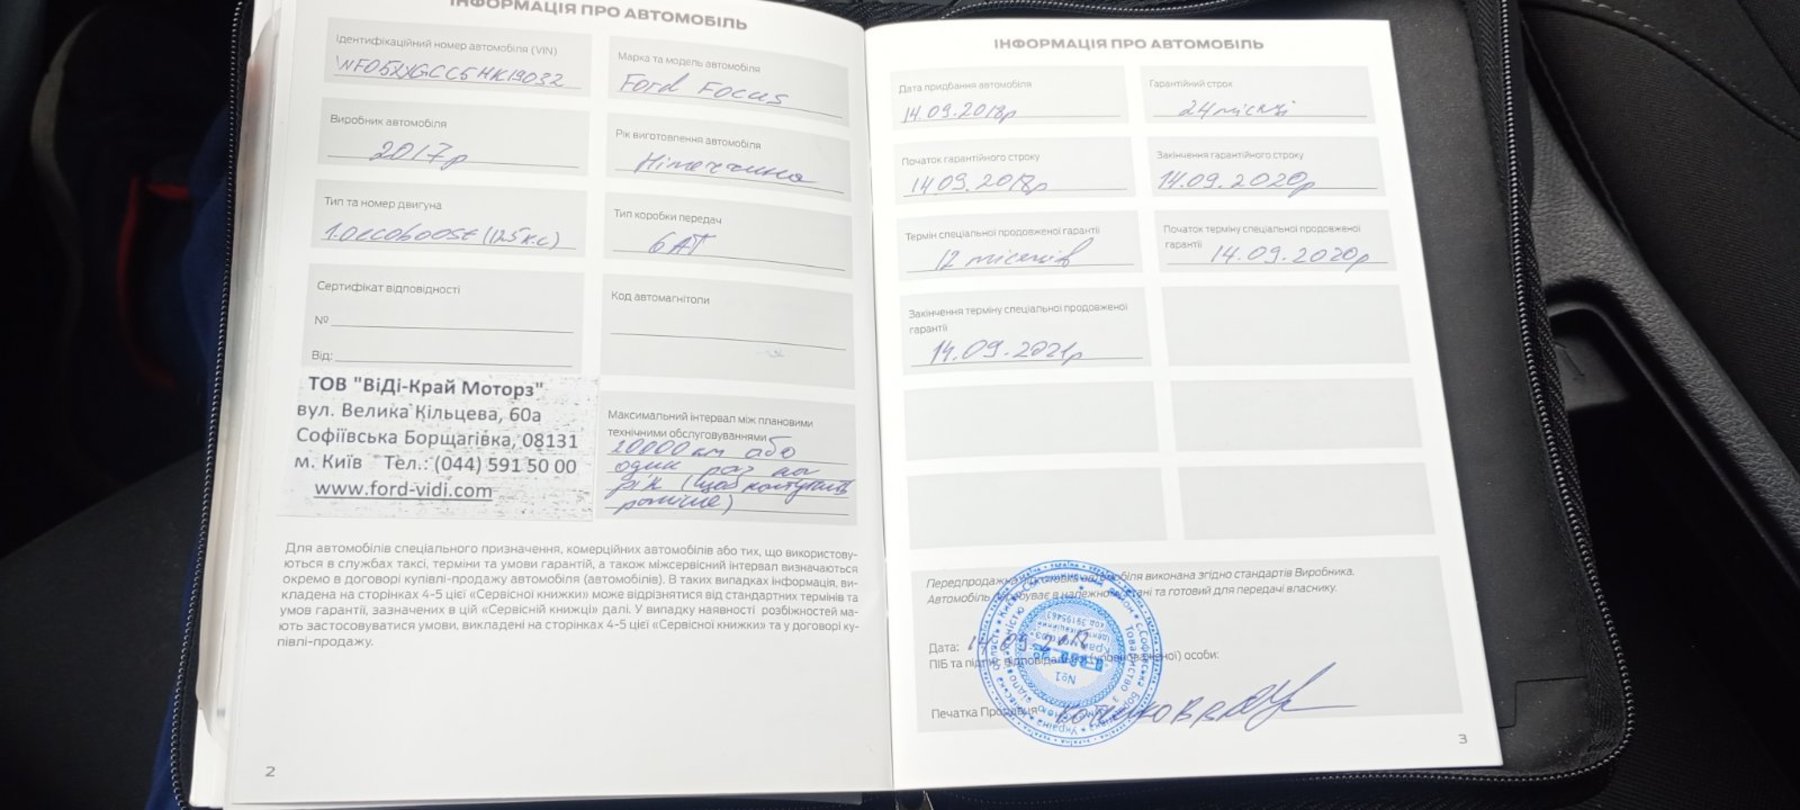 ІНФОРМАЦІЯ ПРО АВТОМОБІЛЬ
Ідентифікаційний номер автомобіля (VIN)
WF05XXGCC5HK19032
Марка та модель автомобіля
Ford Focus
Виробник автомобіля
2017р
Рік виготовлення автомобіля
Німеччина
Тип та номер двигуна
1.0ecoboost (125к.с)
Тип коробки передач
6АТ
Сертифікат відповідності
№
Від:
Код автомагнітоли
ТОВ "ВіДі-Край Моторз"
вул. Велика Кільцева, 60а
Софіївська Борщагівка, 08131
м. Київ Тел.: (044) 591 50 00
www.ford-vidi.com
Максимальний інтервал між плановими
технічними обслуговуваннями
20000км або
один раз на
рік (що наступить
раніше)
Для автомобілів спеціального призначення, комерційних автомобілів або тих, що використову-
ються в службах таксі, терміни та умови гарантій, а також міжсервісний інтервал визначаються
окремо в договорі купівлі-продажу автомобіля (автомобілів). В таких випадках інформація, ви-
кладена на сторінках 4-5 цієї «Сервісної книжки» може відрізнятися від стандартних термінів та
умов гарантії, зазначених в цій «Сервісній книжці» далі. У випадку наявності розбіжностей ма-
ють застосовуватися умови, викладені на сторінках 4-5 цієї «Сервісної книжки» та у договорі ку-
півлі-продажу.
2
ІНФОРМАЦІЯ ПРО АВТОМОБІЛЬ
Дата придбання автомобіля
14.09.2018р
Гарантійний строк
24 місяці
Початок гарантійного строку
14.09.2018р
Закінчення гарантійного строку
14.09.2020р
Термін спеціальної продовженої гарантії
12 місяців
Початок терміну спеціальної продовженої
гарантії
14.09.2020р
Закінчення терміну спеціальної продовженої
гарантії
14.09.2021р
Передпродажна автомобіля виконана згідно стандартів Виробника.
Автомобіль перебуває в належному стані та готовий для передачі власнику.
Дата: 14.09.2018
ПІБ та підпис відповідальної (уповноваженої) особи:
Печатка Продавця
№1
3